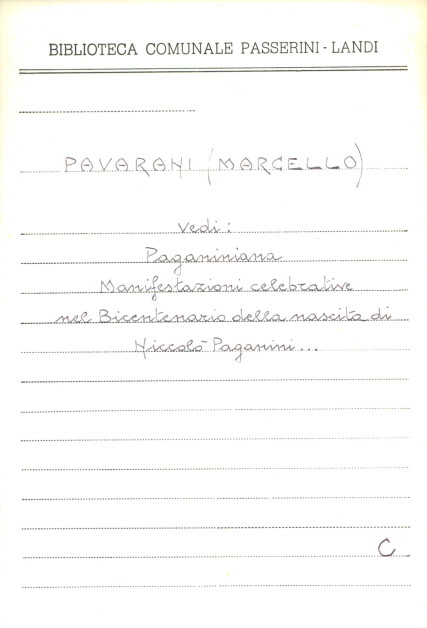 BIBLIOTECA COMUNALE PASSERINI - LANDI
PAVARANI (MARCELLO)
Vedi:
Paganiniana
Manifestazioni celebrative
nel Bicentenario della nascita di
Niccolò Paganini...
C